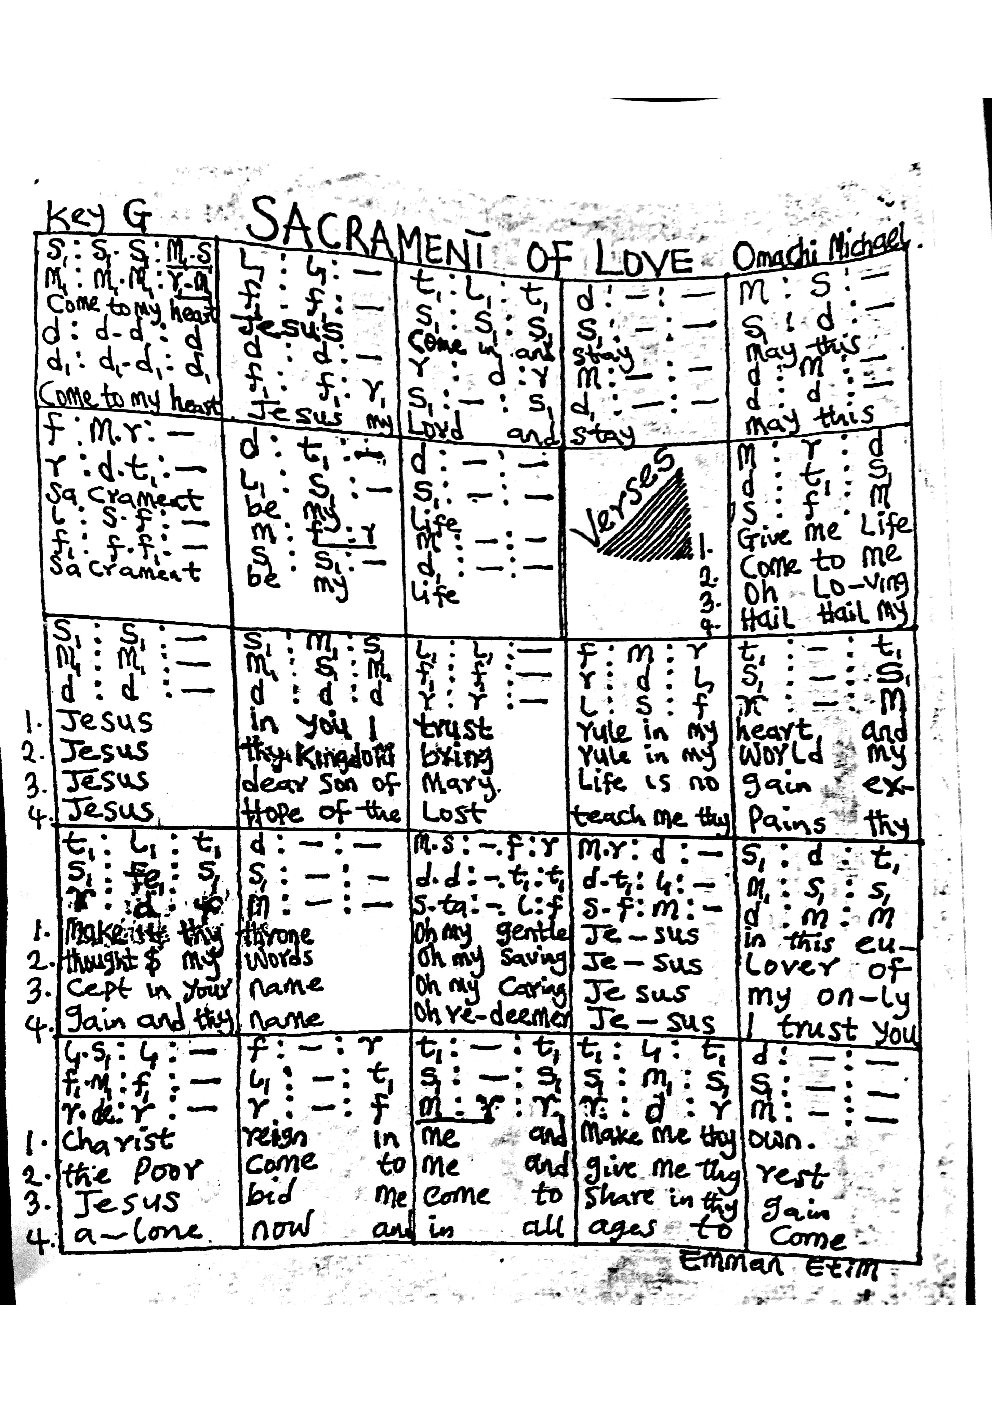 Key G
SACRAMENT OF LOVE
Omachi Michael.
S₁ : S₁. S₁ : M₁.S₁
M₁ : M₁. M₁ : r₁.M₁
Come to my heart
d : d.d : d
d₁ : d₁.d₁ : d₁
Come to my heart
L₁ : L₁ : —
f₁ : f₁ : —
Jesus
d : d : —
f₁ : f₁ : r₁
Jesus my
t₁ : L₁ : t₁
S₁ : S₁ : S₁
Come in and
r : d : r
S₁ : — : S₁
Lord and
d : — : —
S₁ : — : —
stay
M : — : —
d₁ : — : —
stay
M : S : —
S₁ : d : —
May this
d : M : —
d : d : —
may this
f : M.r : —
r : d.t₁ : —
Sacrament
L₁ : S₁.f₁ : —
f₁ : f₁.f₁ : —
Sacrament
d : t₁ : —
L₁ : S₁ : —
be my
M : f : r
S₁ : S₁ : —
be my
d : — : —
S₁ : — : —
Life
M : — : —
d₁ : — : —
Life
Verses
M : r : d
d : t₁ : S₁
S : f : M
1. Give me Life
2. Come to me
3. Oh Lo-ving
4. Hail Hail My
S₁ : S₁ : —
M₁ : M₁ : —
d : d : —
1. Jesus
2. Jesus
3. Jesus
4. Jesus
S₁ : M₁ : S₁
M₁ : S₁ : M₁
d : d : d
in you I
thy Kingdom
dear Son of
Hope of the
L₁ : L₁ : —
f₁ : f₁ : —
r : r : —
trust
bring
Mary.
Lost
f : M : r
r : d : L₁
L : S : f
rule in my
rule in my
Life is no
teach me thy
t₁ : — : t₁
S₁ : — : S₁
r : — : M
heart, and
World my
gain ex-
Pains thy
t₁ : L₁ : t₁
S₁ : fe₁ : S₁
r : d
1. Make it thy
2. thoughts my
3. Cept in your
4. gain and thy
d : — : —
S₁ : — : —
M : — : —
throne
Words
name
name
M.S : —.f : r
d.d : —.t₁ : t₁
S.ta : —.L : f
Oh my gentle
Oh my Saving
Oh my Caring
Oh re-deemer
M.r : d : —
d.t₁ : L₁ : —
S.f : M : —
Je-sus
Je-sus
Jesus
Je-sus
S₁ : d : t₁
M₁ : S₁ : S₁
d : M : M
in this eu-
Lover of
my on-ly
I trust you
L₁.S₁ : L₁ : —
f₁.M₁ : f₁ : —
r.d : r : —
1. Charist
2. the Poor
3. Jesus
4. a-lone.
f : — : r
L₁ : — : t₁
r : — : f
reign in
Come to
bid me
now and
t₁ : — : t₁
S₁ : — : S₁
M : r : r
me and
me and
come to
in all
t₁ : L₁ : t₁
S₁ : M₁ : S₁
r : d : r
Make me thy
give me thy
Share in thy
ages to
d : — : —
S₁ : — : —
M : — : —
own.
rest
gain
Come
Emman Etim